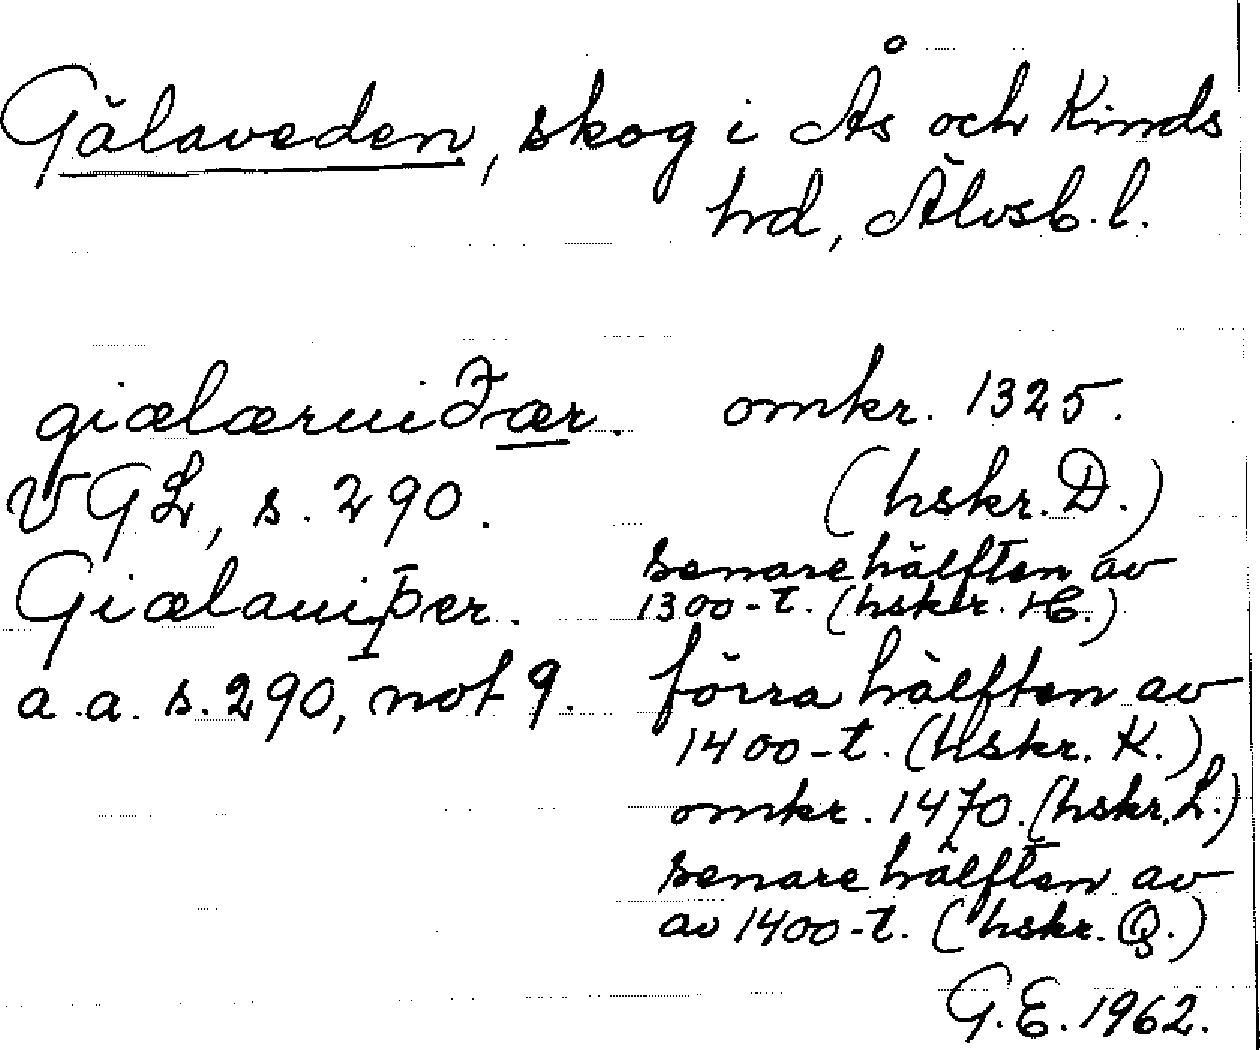 Gälaveden, skog i Ås och Kinds
hrd, Älvsb. l.
giælæruiðær. omkr. 1325.
VGL, s. 290. (hskr. D.)
Giælauiþer. senare hälften av
1300-t. (hskr. H.)
a.a. s. 290, not 9. förra hälften av
1400-t. (hskr. K.)
omkr. 1470. (hskr. L.)
senare hälften av
av 1400-t. (hskr. Q.)
G.E. 1962.